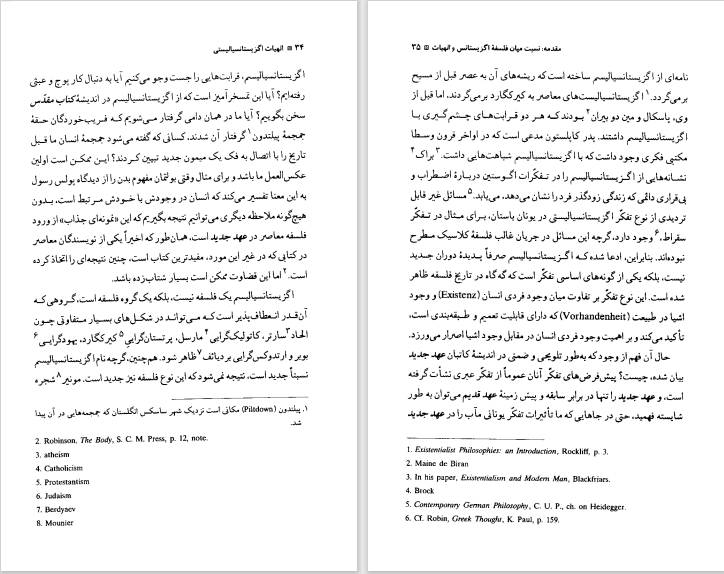 ۳۴ ■ الهیات اگزیستانسیالیستی
اگزیستانسیالیسم، قرابت‌هایی را جست وجو می‌کنیم آیا به دنبال کار پوچ و عبثی
رفته‌ایم؟ آیا این تمسخرآمیز است که از اگزیستانسیالیسم در اندیشهٔ کتاب مقدّس
سخن بگوییم؟ آیا ما در همان دامی گرفتار می‌شویم که فریب‌خوردگان حقهٔ
جمجمهٔ پیلتدون۱ گرفتار آن شدند، کسانی که گفته می‌شود جمجمهٔ انسان ما قبل
تاریخ را با اتصال به فک یک میمون جدید تبیین کردند؟ این ممکن است اولین
عکس‌العمل ما باشد و برای مثال وقتی بولتمان مفهوم بدن را از دیدگاه پولس رسول
به این معنا تفسیر می‌کند که انسان در وجودش با خودش مرتبط است، بدون
هیچ‌گونه ملاحظه دیگری می‌توانیم نتیجه بگیریم که این «نمونه‌ای جذاب» از ورود
فلسفه معاصر در عهد جدید است، همان‌طور که اخیراً یکی از نویسندگان معاصر
در کتابی که در غیر این مورد، مفیدترین کتاب است، چنین نتیجه‌ای را اتخاذ کرده
است.۲ اما این قضاوت ممکن است بسیار شتاب‌زده باشد.
اگزیستانسیالیسم یک فلسفه نیست، بلکه یک گروه فلسفه است، گروهی که
آن‌قدر انعطاف‌پذیر است که می‌تواند در شکل‌های بسیار متفاوتی چون
الحاد۳ سارتر، کاتولیک‌گرایی۴ مارسل، پرتستان‌گرایی۵ کیرکگارد، یهودگرایی۶
بوبر و ارتدوکس‌گرایی بردیائف۷ ظاهر شود. هم‌چنین، گرچه نام اگزیستانسیالیسم
نسبتاً جدید است، نتیجه نمی‌شود که این نوع فلسفه نیز جدید است. مونیر۸ شجره
۱. پیلتدون (Piltdown) مکانی است نزدیک شهر ساسکس انگلستان که جمجمه‌هایی در آن پیدا
شد.
2. Robinson, The Body, S. C. M. Press, p. 12, note.
3. atheism
4. Catholicism
5. Protestantism
6. Judaism
7. Berdyaev
8. Mounier
مقدمه: نسبت میان فلسفهٔ اگزیستانس و الهیات ■ ۳۵
نامه‌ای از اگزیستانسیالیسم ساخته است که ریشه‌های آن به عصر قبل از مسیح
برمی‌گردد.۱ اگزیستانسیالیست‌های معاصر به کیرکگارد برمی‌گردند. اما قبل از
وی، پاسکال و مین دو بیران۲ بودند که هر دو قرابت‌های چشم‌گیری با
اگزیستانسیالیسم داشتند. پدر کاپلستون مدعی است که در اواخر قرون وسطا
مکتبی فکری وجود داشت که با اگزیستانسیالیسم شباهت‌هایی داشت.۳ براک۴
نشانه‌هایی از اگزیستانسیالیسم را در تفکّرات اگوستین دربارهٔ اضطراب و
بی‌قراری دائمی که زندگی زودگذر فرد را نشان می‌دهد، می‌یابد.۵ مسائل غیر قابل
تردیدی از نوع تفکّر اگزیستانسیالیستی در یونان باستان، برای مثال در تفکّر
سقراط،۶ وجود دارد، گرچه این مسائل در جریان غالب فلسفهٔ کلاسیک مطرح
نبوده‌اند. بنابراین، ادعا شده که اگزیستانسیالیسم صرفاً پدیدهٔ دوران جدید
نیست، بلکه یکی از گونه‌های اساسی تفکّر است که گه‌گاه در تاریخ فلسفه ظاهر
شده است. این نوع تفکّر بر تفاوت میان وجود فردی انسان (Existenz) و وجود
اشیا در طبیعت (Vorhandenheit) که دارای قابلیت تعمیم و طبقه‌بندی است،
تأکید می‌کند و بر اهمیت وجود فردی انسان در مقابل وجود اشیا اصرار می‌ورزد.
حال آن فهم از وجود که به‌طور تلویحی و ضمنی در اندیشهٔ کاتبان عهد جدید
بیان شده، چیست؟ پیش‌فرض‌های تفکّر آنان عموماً از تفکّر عبری نشأت گرفته
است، و عهد جدید را تنها در برابر سابقه و پیش زمینهٔ عهد قدیم می‌توان به طور
شایسته فهمید، حتی در جاهایی که ما تأثیرات تفکّر یونانی مآب را در عهد جدید
1. Existentialist Philosophies: an Introduction, Rockliff, p. 3.
2. Maine de Biran
3. In his paper, Existentialism and Modern Man, Blackfriars.
4. Brock
5. Contemporary German Philosophy, C. U. P., ch. on Heidegger.
6. Cf. Robin, Greek Thought, K. Paul, p. 159.